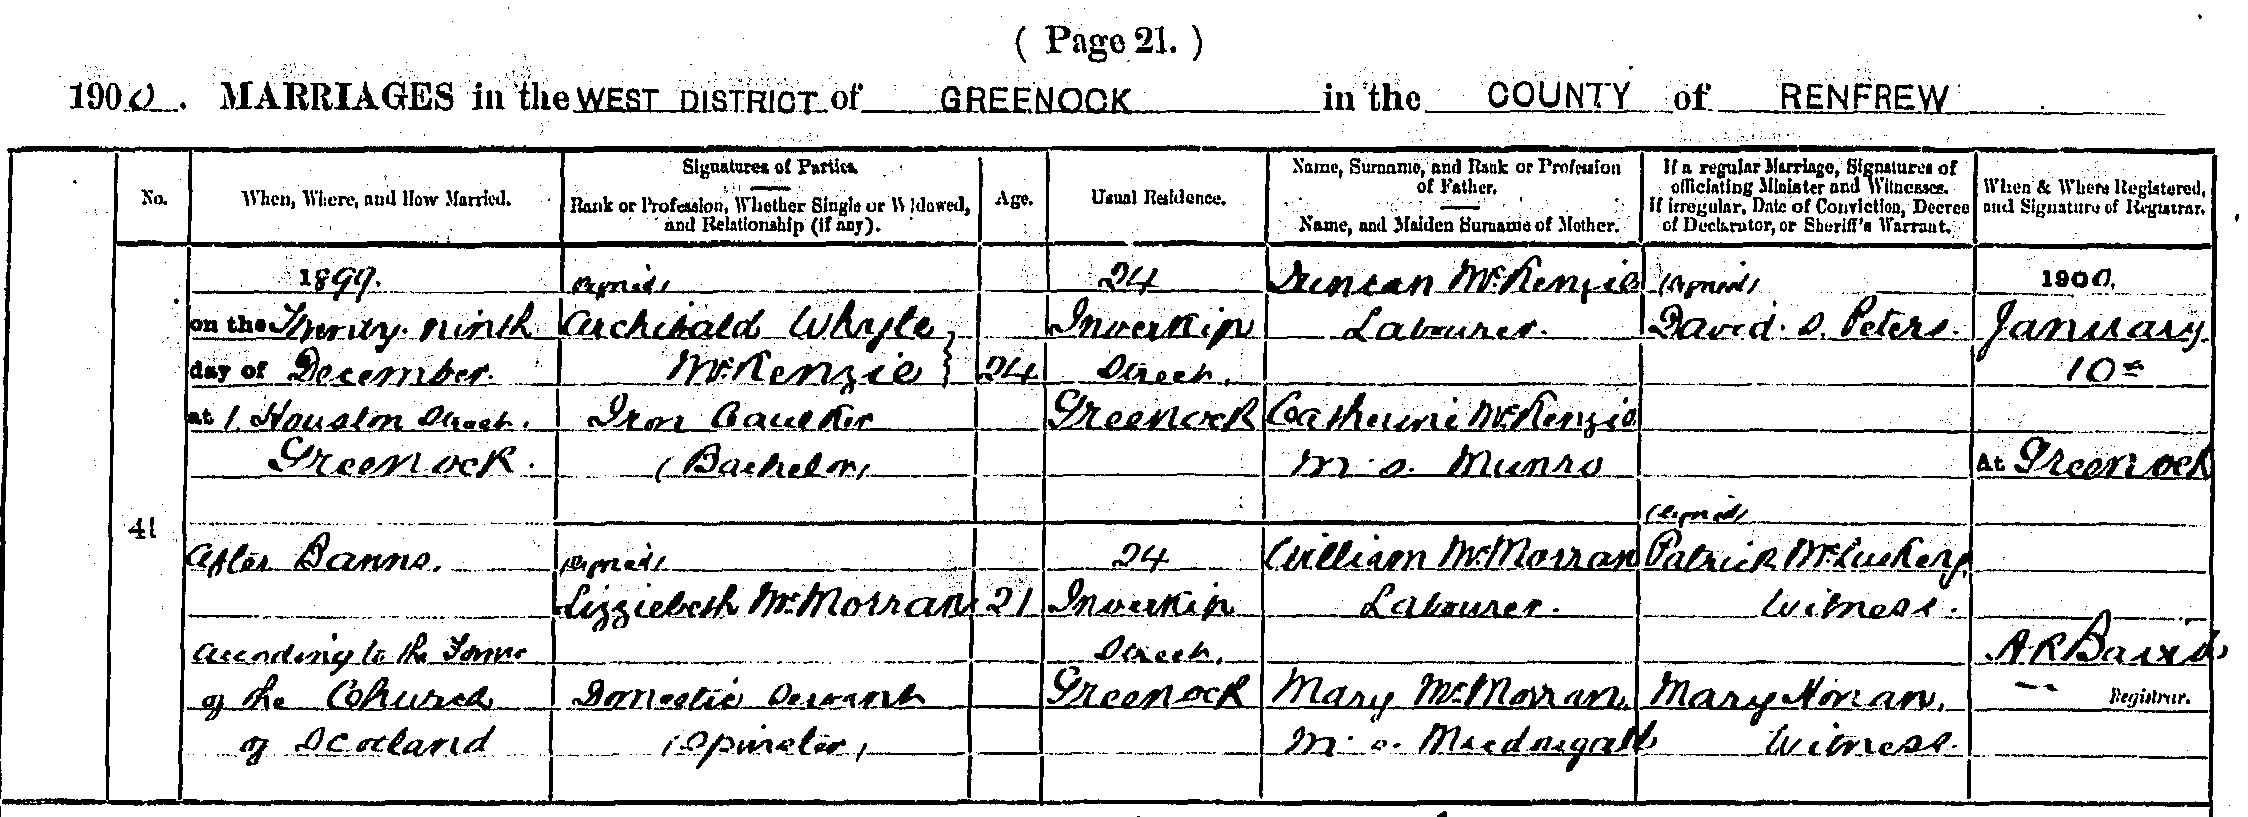 ( Page 21. )
1900. MARRIAGES in the WEST DISTRICT of GREENOCK in the COUNTY of RENFREW
No.
When, Where, and How Married.
Signatures of Parties.
Rank or Profession, Whether Single or Widowed,
and Relationship (if any).
Age.
Usual Residence.
Name, Surname, and Rank or Profession
of Father.
Name, and Maiden Surname of Mother.
If a regular Marriage, Signatures of
officiating Minister and Witnesses.
If irregular, Date of Conviction, Decree
of Declarator, or Sheriff's Warrant.
When & Where Registered,
and Signature of Registrar.
41
1899.
on the Twenty ninth
day of December.
at 1 Houston Street.
Greenock.
After Banns.
According to the Forms
of the Church
of Scotland
(signed)
Archibald Whyte
McKenzie
Iron Caulker
(Bachelor)
(signed)
Lizziebeth McMorran
Domestic Servant
(Spinster)
24
21
24
Inverkip
Street,
Greenock
24
Inverkip
Street,
Greenock
Duncan McKenzie
Labourer.
Catherine McKenzie
m.s. Munro
William McMorran
Labourer.
Mary McMorran
m.s. Macdougall
(signed)
David. S. Peters.
(signed)
Patrick McCuskery,
Witness.
Mary Honan,
Witness.
1900.
January
10th
At Greenock
A R Baird
Registrar.